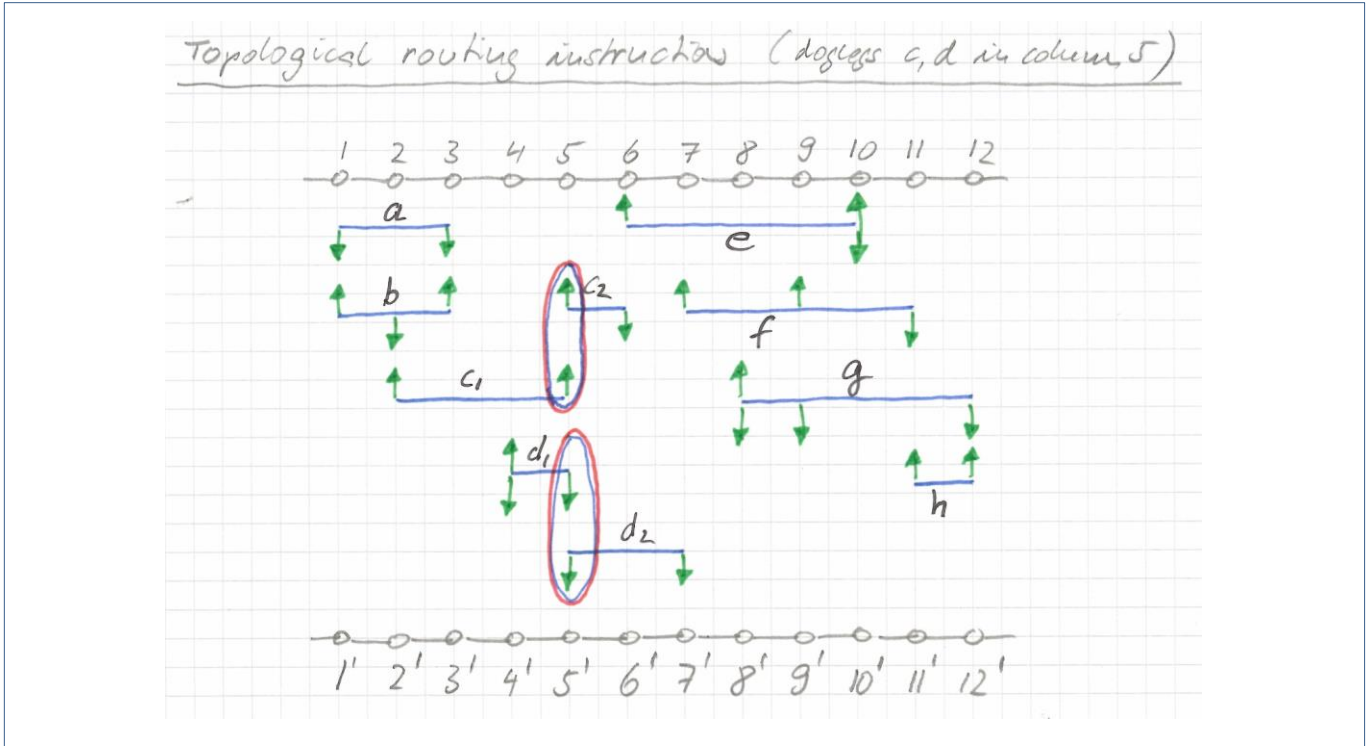 Topological routing instruction (doglegs c, d in column 5)
1 2 3 4 5 6 7 8 9 10 11 12
a
e
b c2
f
c1 g
d1
h
d2
1' 2' 3' 4' 5' 6' 7' 8' 9' 10' 11' 12'